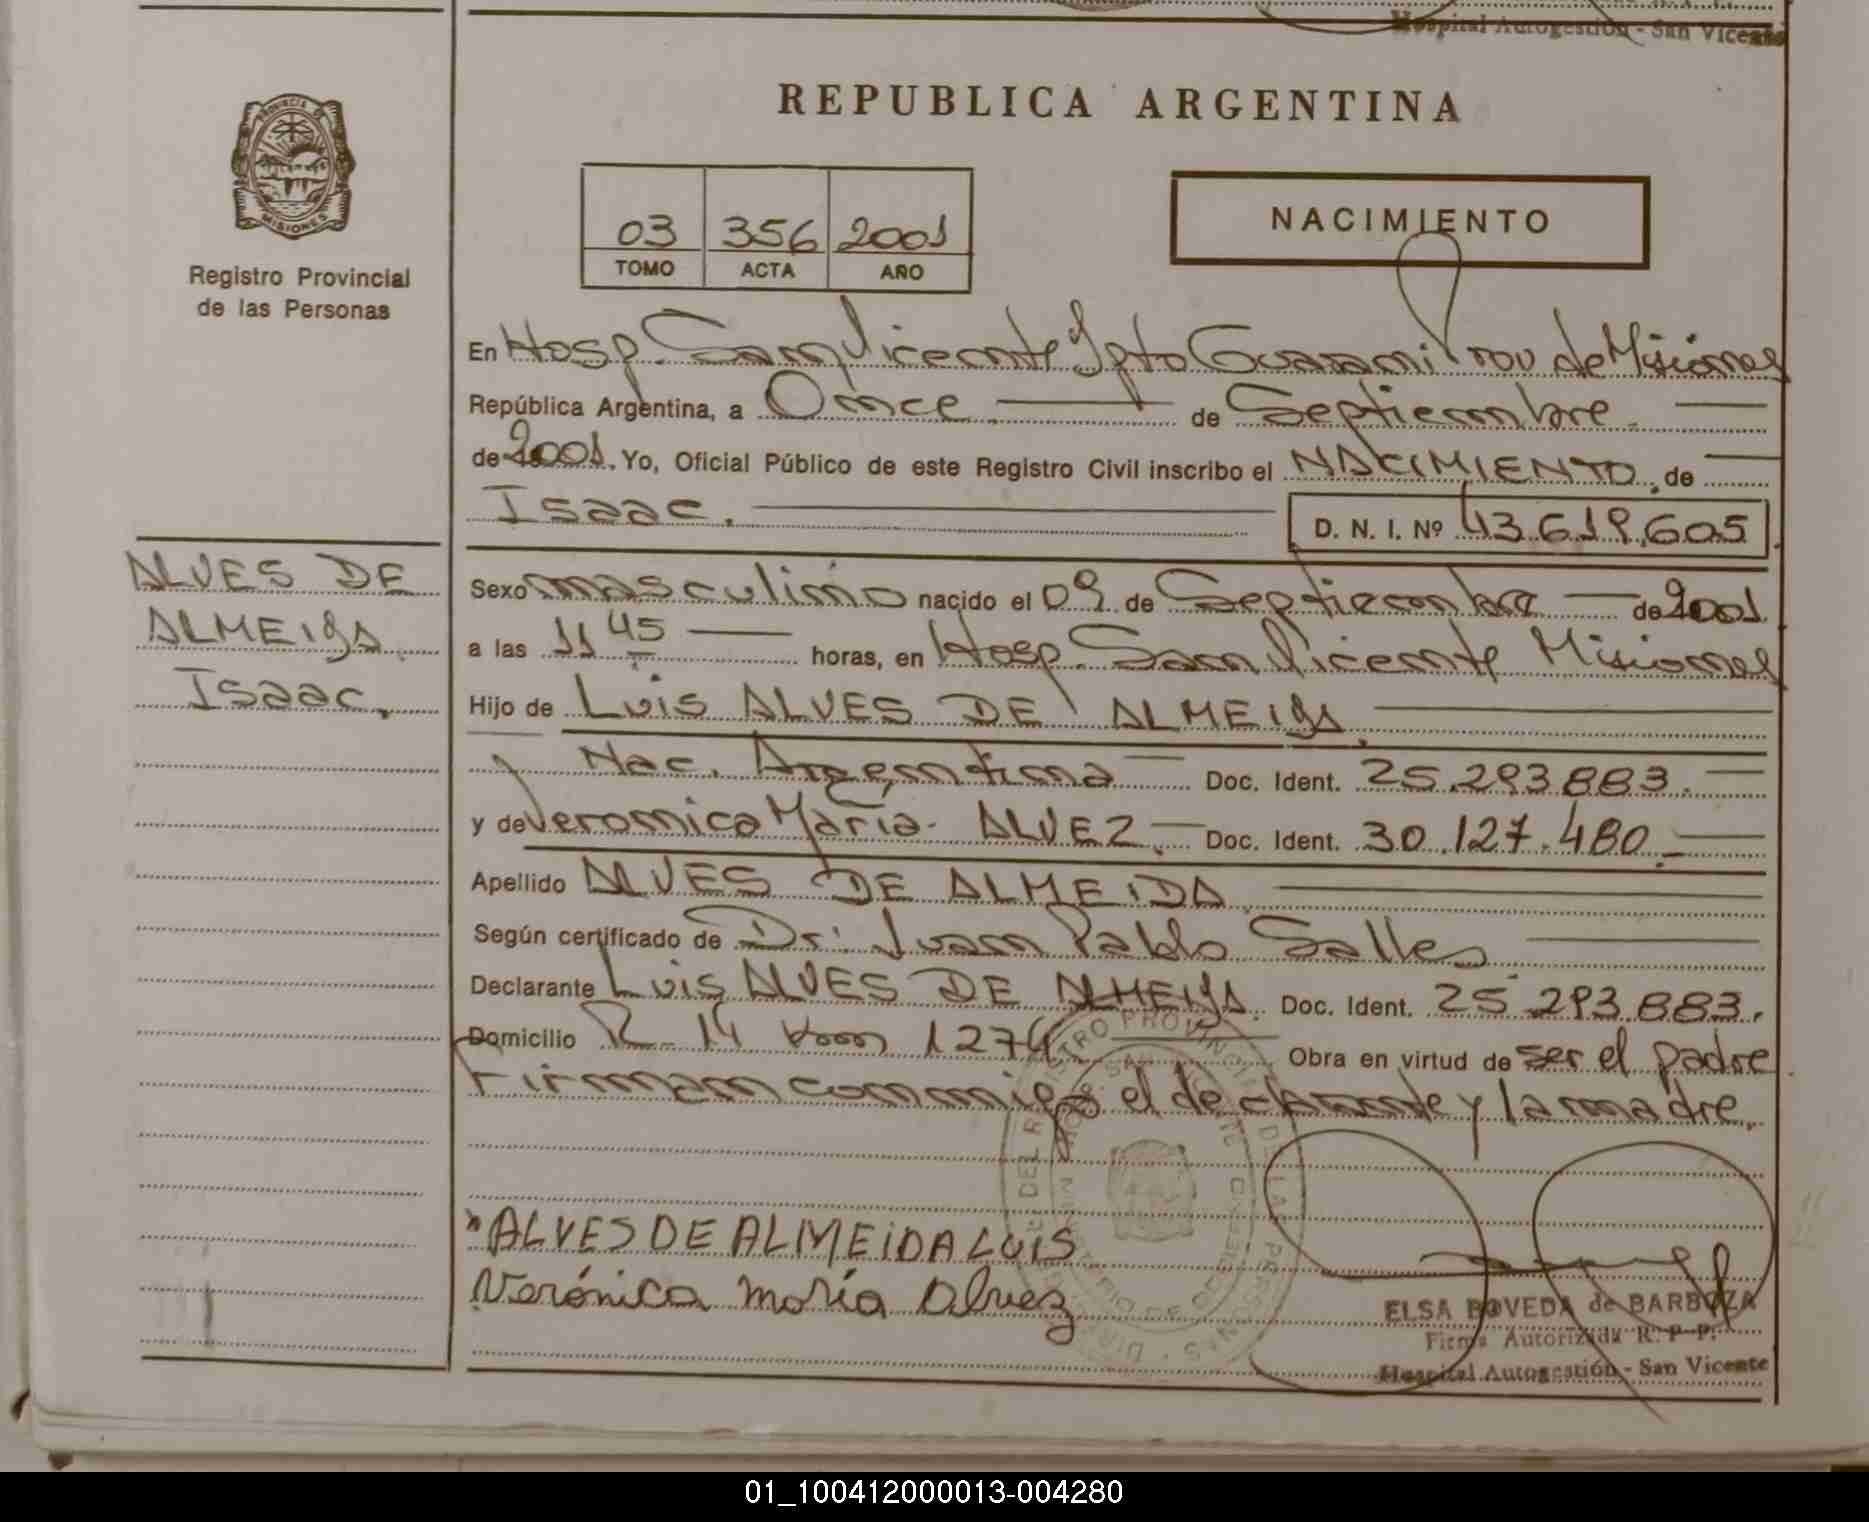 Hospital Autogestión - San Vicente
REPUBLICA ARGENTINA
PROVINCIA DE
MISIONES
Registro Provincial
de las Personas
03 356 2001
TOMO ACTA AÑO
NACIMIENTO
En Hosp. San Vicente Dpto Guarani Prov de Misiones
República Argentina, a Once de Septiembre
de 2001. Yo, Oficial Público de este Registro Civil inscribo el NACIMIENTO de
Isaac.
D. N. I. Nº 43.619.605
ALVES DE
ALMEIDA
Isaac.
Sexo masculino nacido el 09 de Septiembre de 2001
a las 11 45 horas, en Hosp. San Vicente Misiones
Hijo de Luis ALVES DE ALMEIDA.
Nac. Argentina Doc. Ident. 25.293.883.
y de Veronica María ALVEZ. Doc. Ident. 30.127.480.
Apellido ALVES DE ALMEIDA
Según certificado de Dr. Juan Pablo Salles
Declarante Luis ALVES DE ALMEIDA. Doc. Ident. 25.293.883.
Domicilio R. 14 km 1274 Obra en virtud de ser el padre
Firman conmigo el declarante y la madre.
ALVES DE ALMEIDA LUIS
Verónica maría Alvez
ELSA BOVEDA de BARBOZA
Firma Autorizada R. P. P.
Hospital Autogestión - San Vicente
01_100412000013-004280